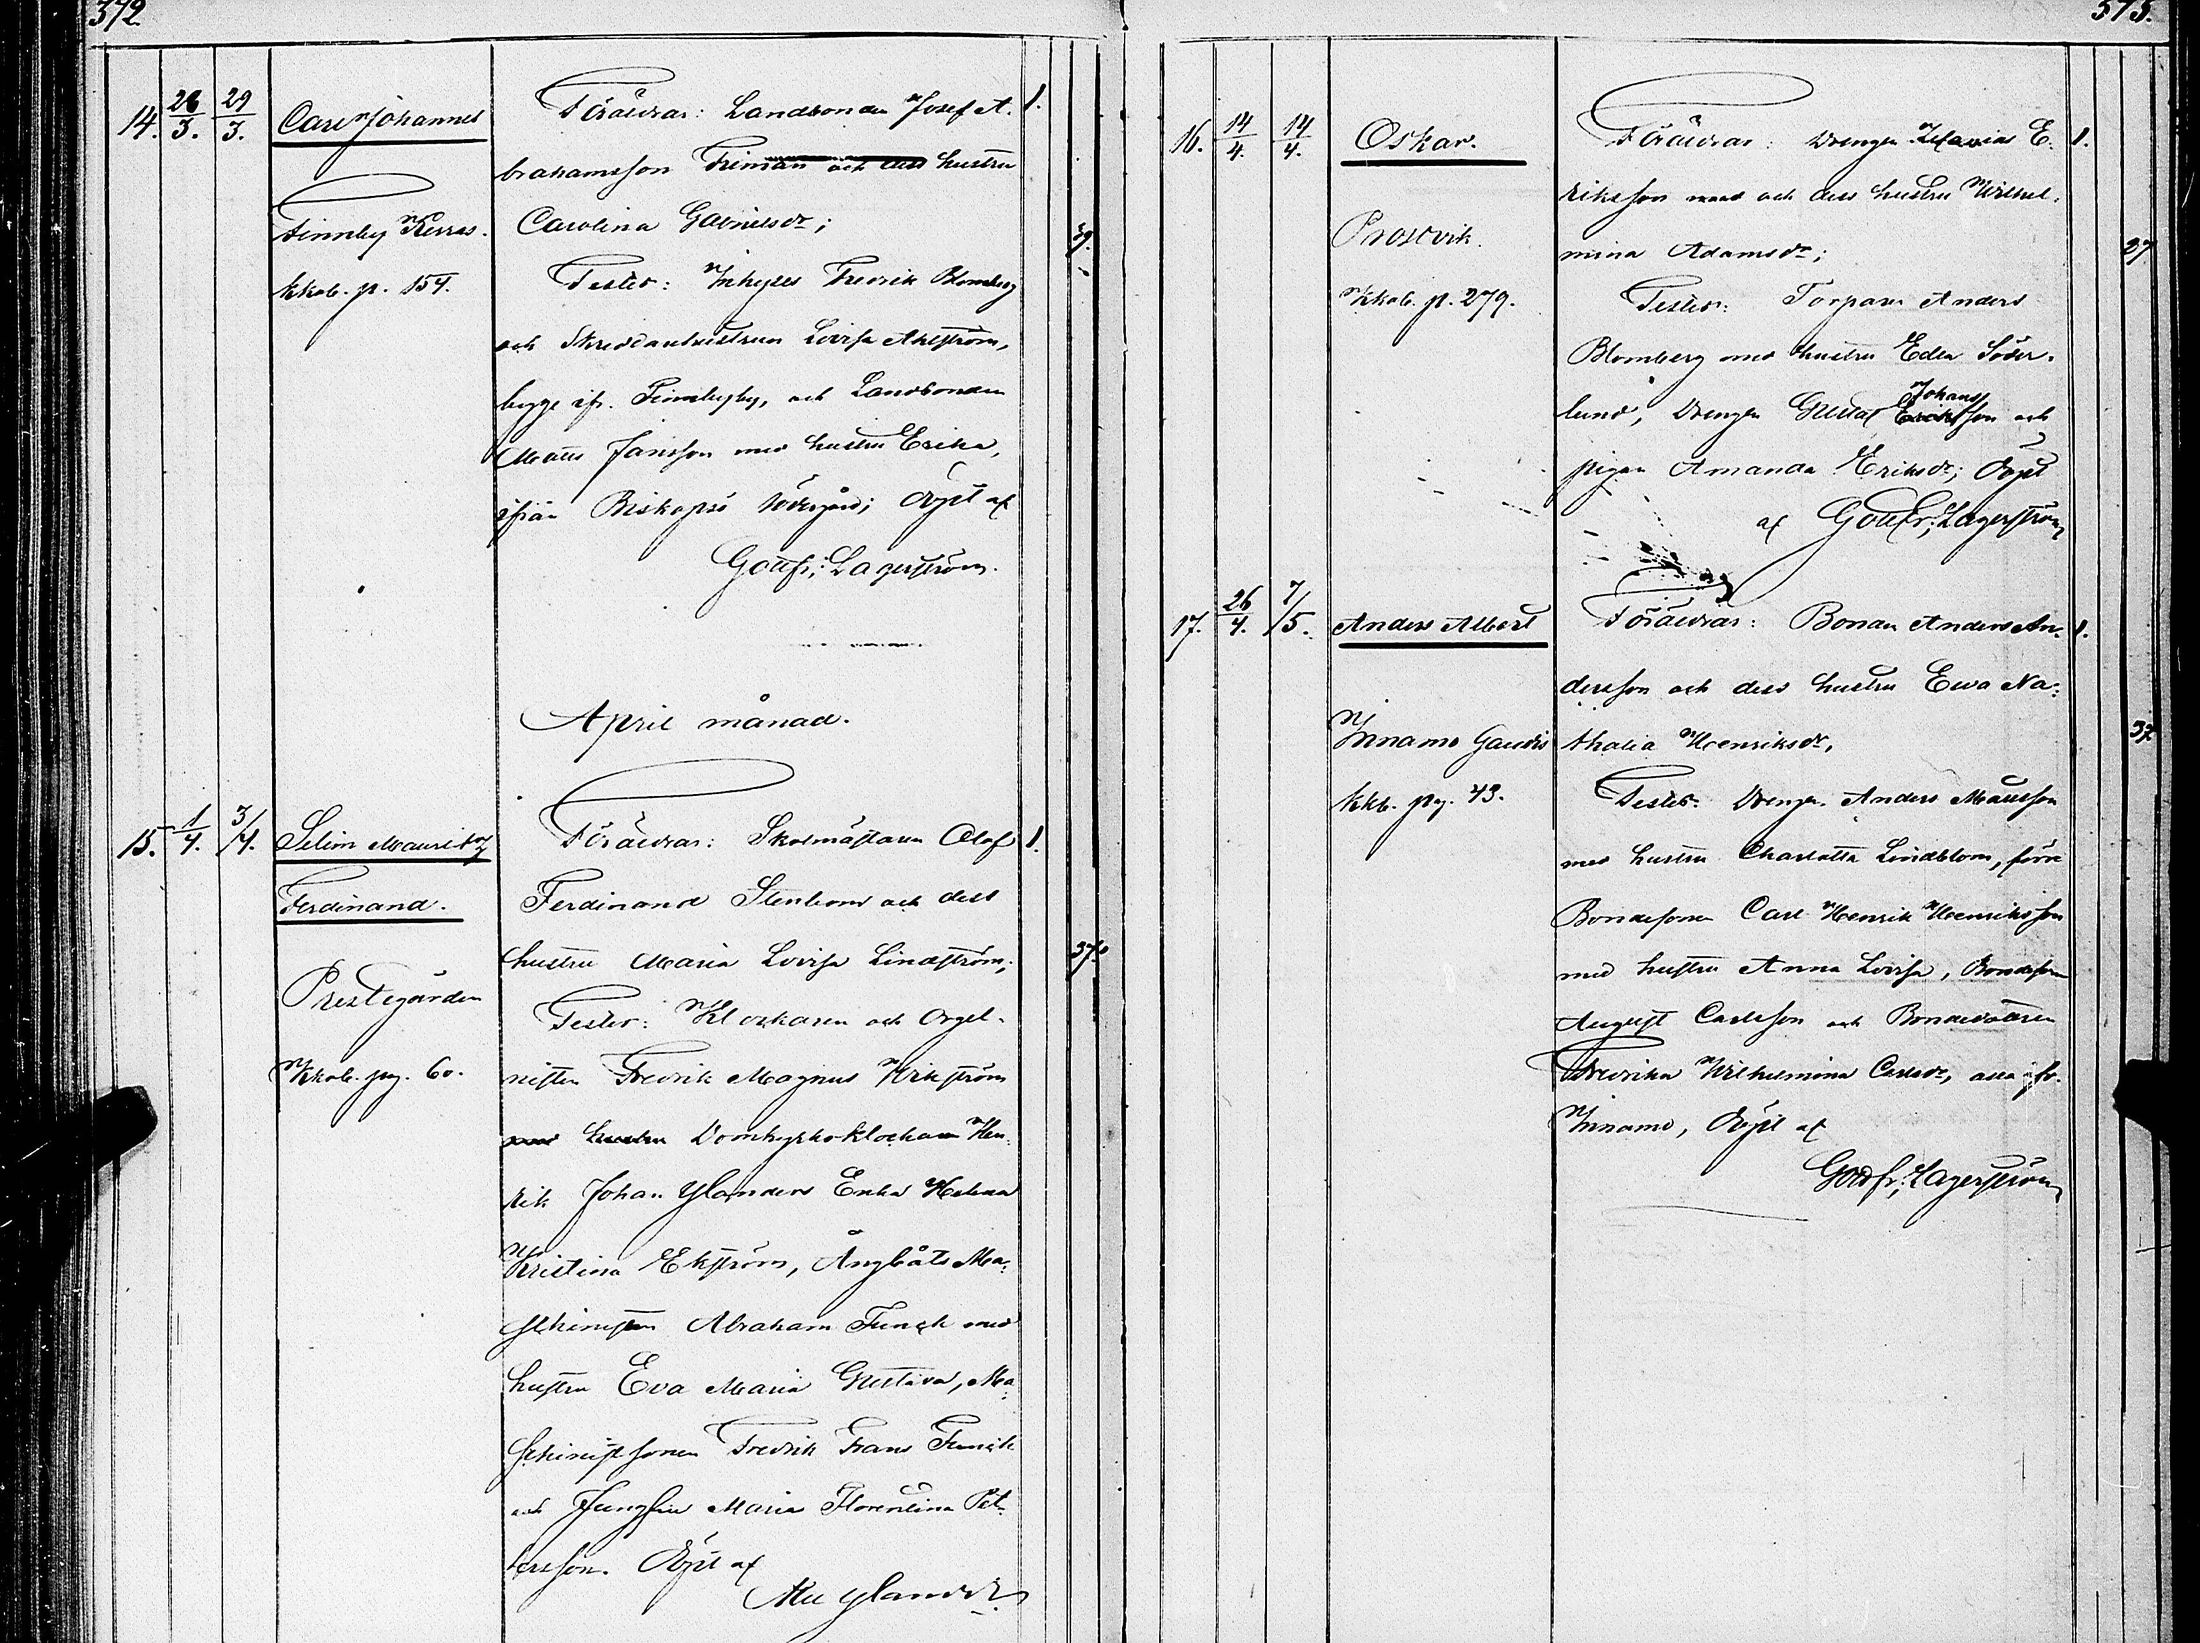 372.
14. 28/3. 29/3. Carl Johannes
Finnby Kerras.
kkob. p. 154.
Föräldrar: Landbonden Josef A. 1.
brahamsson Friman och dess hustru
Carolina Gabrielsdr; 39.
Testes: Inhyses Fredrik Blomberg
och Skreddarehustrun Lovisa Ahlström,
bygge ifr. Finnbyby, och Landbonden
Matts Jansson med hustru Erika,
ifrån Biskopsö Södergård; Döpt af
Gottfr; Lagerström.
April månad.
15. 1/4. 3/4. Selim Mauritz
Ferdinand.
Prestegården
Kkob. pg. 60.
Föräldrar: Skolmästaren Olof 1.
Ferdinand Stenbom och dess
hustru Maria Lovisa Lindström; 37.
Testes: Klockaren och Orgel-
nisten Fredrik Magnus Wikström
med hustru Domkyrko-klockaren Hen-
rik Johan Ylanders Enka Helena
Kristina Ekström, Ångbåts Ma-
schinisten Abraham Funck med
hustru Eva Maria Gustava, Ma-
schinistsonen Fredrik Frans Funck
och Jungfru Maria Florentina Pet-
tersson. Döpt af
Ylander
373.
16. 14/4. 14/4. Oskar.
Prostvik.
Kkob. p. 279.
Föräldrar: Drengen E. 1.
riksson med och dess hustru Wilhel-
mina Adamsdr; 27
Testes: Torparn Anders
Blomberg med hustru Edla Söder-
lund, Drengen Gustaf Eriksson Johans och
pigan Amanda Eriksdr; Döpt
af Gottfr; Lagerström
17. 26/4. 7/5. Anders Albert
Innamo Gaudis
kkb. pg. 43.
Föräldrar: Bonden Anders An- 1.
dersson och dess hustru Ewa Na-
thalia Henriksdr, 37
Testes: Drengen Anders Mattsson
med hustru Charlotta Lindblom, förre
Bondesonen Carl Henrik Henriksson
med hustru Anna Lovisa, Bondeson
August Carlsson och Bondedottren
Fredrika Wilhelmina Carlsdr, alla ifr.
Innamo, Döpt af
Godfr; Lagerström